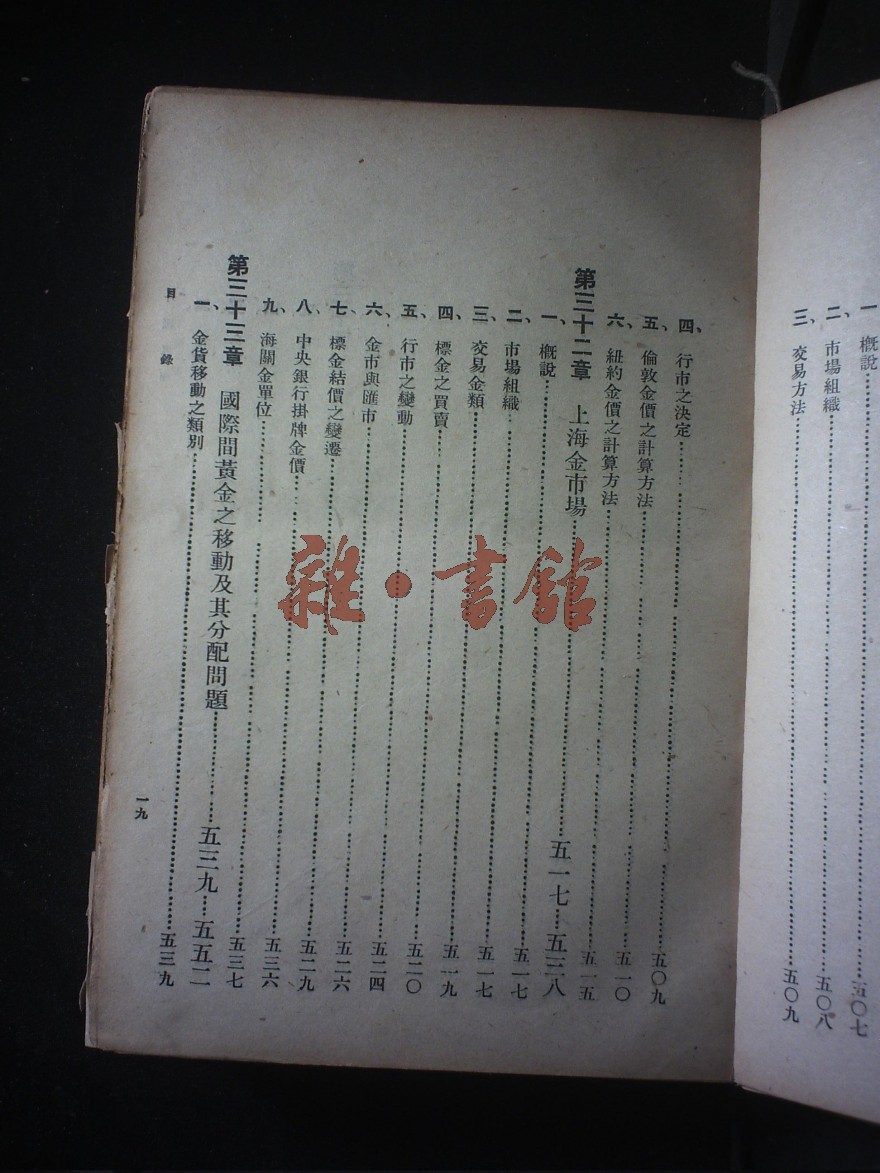 一 概說……五〇七
二、市場組織……五〇八
三、交易方法……五〇九
四、行市之決定……五〇九
五、倫敦金價之計算方法……五一〇
六、紐約金價之計算方法……五一五
第三十二章 上海金市場……五一七…五三八
一、概說……五一七
二、市場組織……五一七
三、交易金類……五一九
四、標金之買賣……五二〇
五、行市之變動……五二四
六、金市與匯市……五二六
七、標金結價之變遷……五二九
八、中央銀行掛牌金價……五三六
九、海關金單位……五三七
第三十三章 國際間黃金之移動及其分配問題……五三九…五五二
一、金貨移動之類別……五三九
目錄
一九
雜·書館